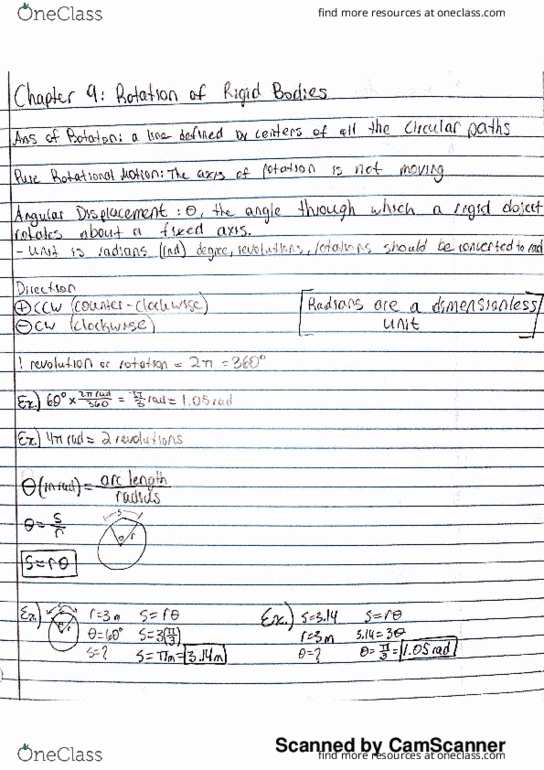 OneClass
find more resources at oneclass.com
Chapter 9: Rotation of Rigid Bodies
Axis of Rotation: a line defined by centers of all the circular paths
Pure Rotational Motion: The axis of rotation is not moving
Angular Displacement: θ, the angle through which a rigid object
rotates about a fixed axis.
- Unit is radians (rad) degree, revolutions, rotations should be converted to rad
Direction
⊕ CCW (counter-clockwise)
⊖ CW (clockwise)
[Radians are a dimensionless
unit]
1 revolution or rotation = 2π = 360°
Ex.) 60° × 2π rad/360 = π/3 rad = 1.05 rad
Ex.) 4π rad = 2 revolutions
θ (in rad) = arc length/radius
θ = s/r
s
θ r
S = rθ
Ex.) r = 3m S = rθ
θ = 60° S = 3(π/3)
s = ? S = πm = 3.14m
Ex.) s = 3.14 S = rθ
r = 3m 3.14 = 3θ
θ = ? θ = π/3 = 1.05 rad
Scanned by CamScanner
OneClass
find more resources at oneclass.com